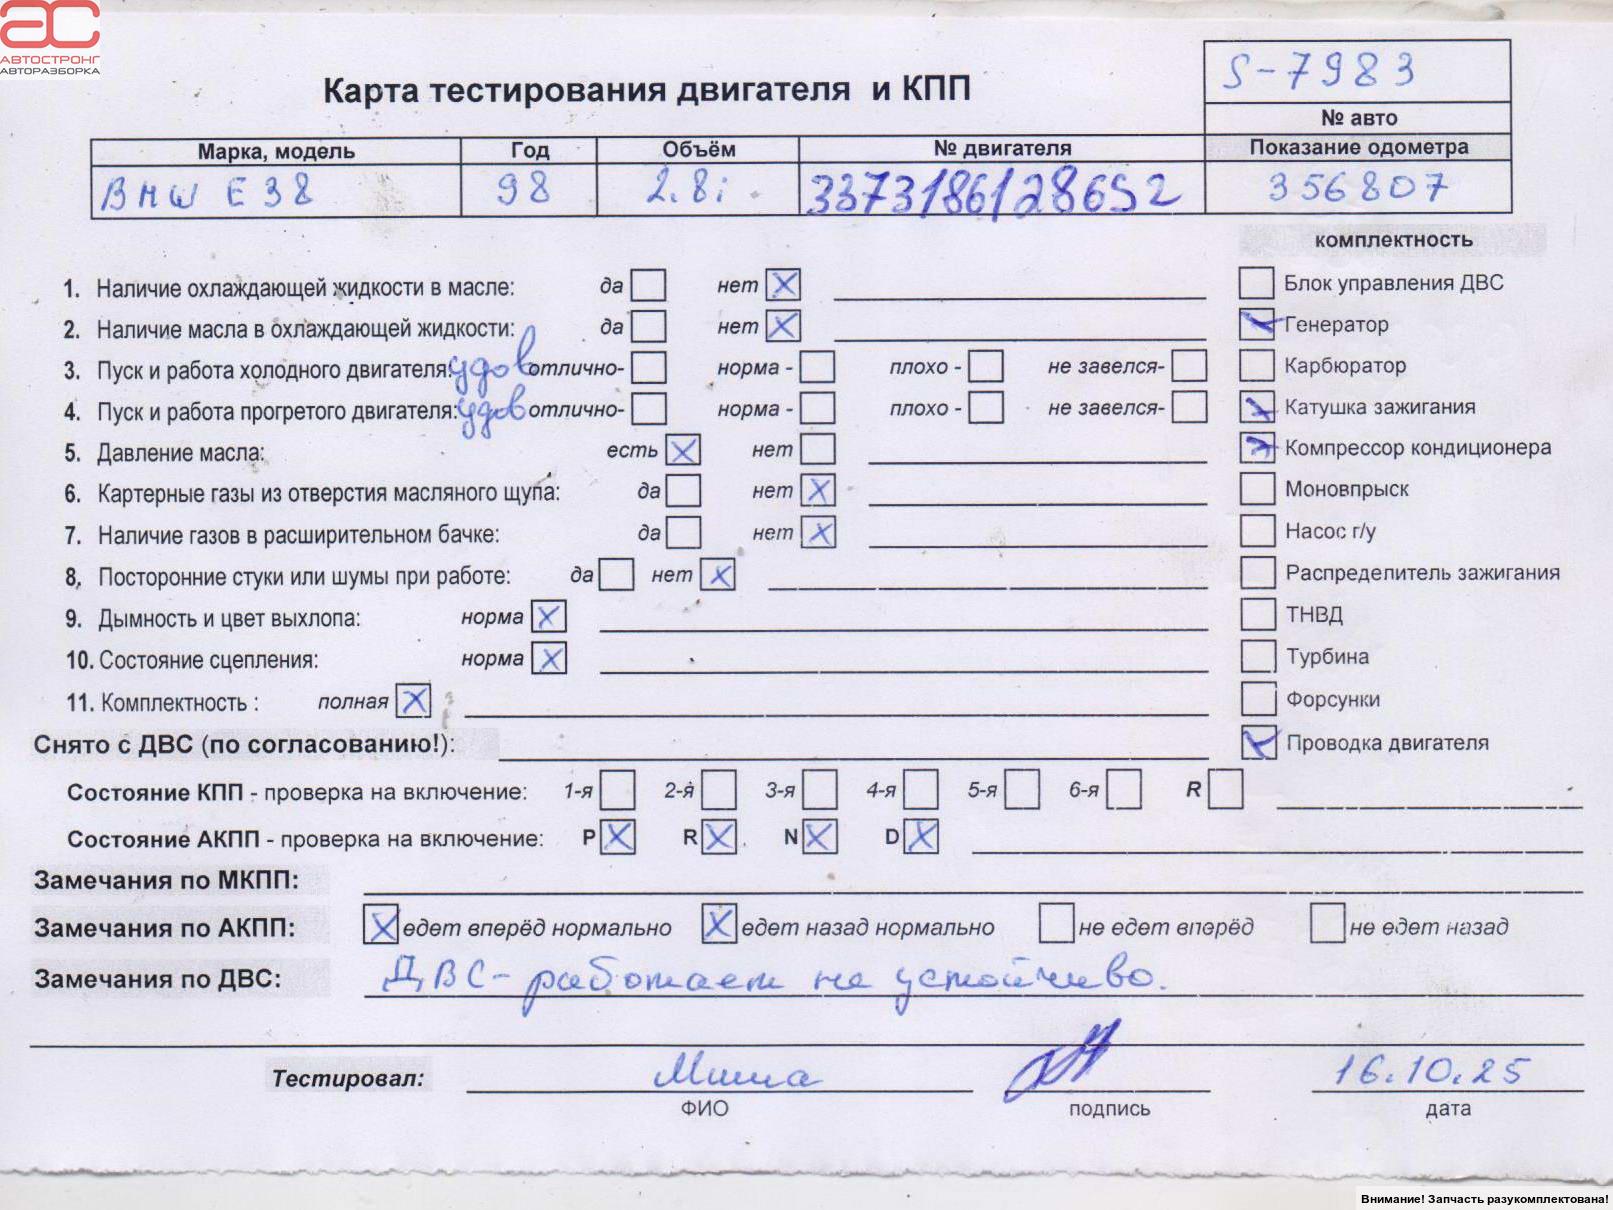 АС
АВТОСТРОНГ
АВТОРАЗБОРКА
S-7983
Карта тестирования двигателя и КПП
№ авто
Марка, модель Год Объём № двигателя Показание одометра
BMW E38 98 2.8i 33731861286S2 356807
комплектность
1. Наличие охлаждающей жидкости в масле: да нет X Блок управления ДВС
2. Наличие масла в охлаждающей жидкости: да нет X Генератор
3. Пуск и работа холодного двигателя: удов отлично- норма - плохо - не завелся- Карбюратор
4. Пуск и работа прогретого двигателя: удов отлично- норма - плохо - не завелся- Катушка зажигания
5. Давление масла: есть X нет Компрессор кондиционера
6. Картерные газы из отверстия масляного щупа: да нет X Моновпрыск
7. Наличие газов в расширительном бачке: да нет X Насос г/у
8. Посторонние стуки или шумы при работе: да нет X Распределитель зажигания
9. Дымность и цвет выхлопа: норма X ТНВД
10. Состояние сцепления: норма X Турбина
11. Комплектность : полная X Форсунки
Снято с ДВС (по согласованию!): Проводка двигателя
Состояние КПП - проверка на включение: 1-я 2-я 3-я 4-я 5-я 6-я R
Состояние АКПП - проверка на включение: P X R X N X D X
Замечания по МКПП:
Замечания по АКПП: X едет вперёд нормально X едет назад нормально не едет вперёд не едет назад
Замечания по ДВС: ДВС - работает не устойчиво.
Тестировал: Миша 16.10.25
ФИО подпись дата
Внимание! Запчасть разукомплектована!